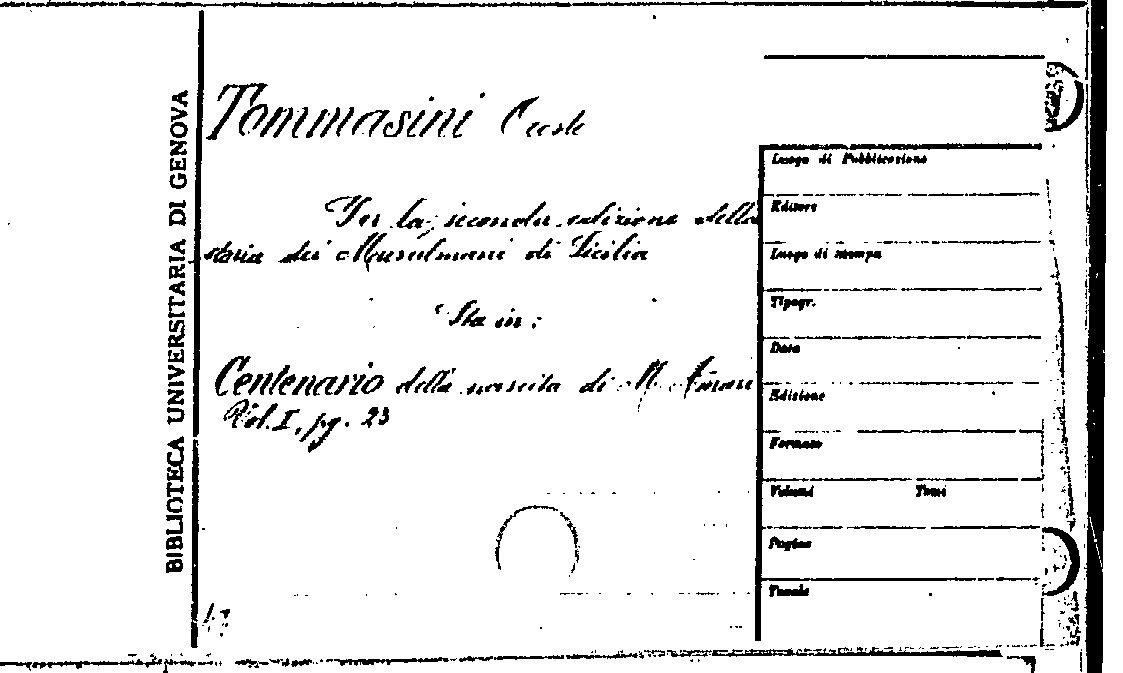 BIBLIOTECA UNIVERSITARIA DI GENOVA
Tommasini Oreste
Per la seconda edizione della
storia dei Musulmani di Sicilia
Sta in:
Centenario della nascita di M. Amari
Vol. I, pg. 23
Luogo di Pubblicazione
Editore
Luogo di stampa
Tipogr.
Data
Edizione
Formato
Volumi Tomi
Pagine
Tavole